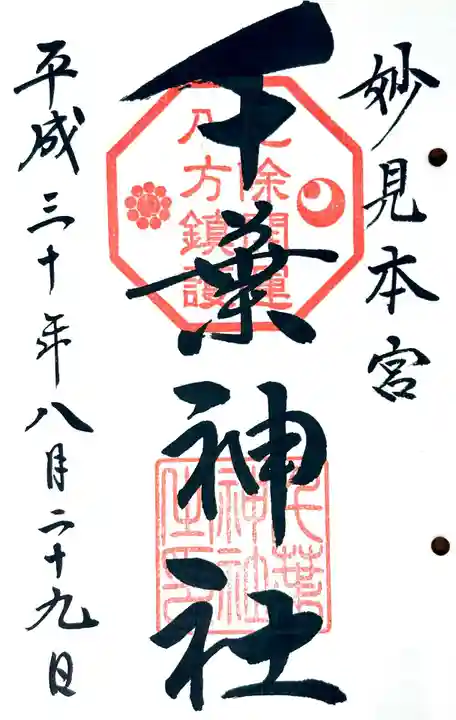 妙見本宮
千葉神社
平成三十年八月二十九日
除開運
八方鎮護
千葉
神社